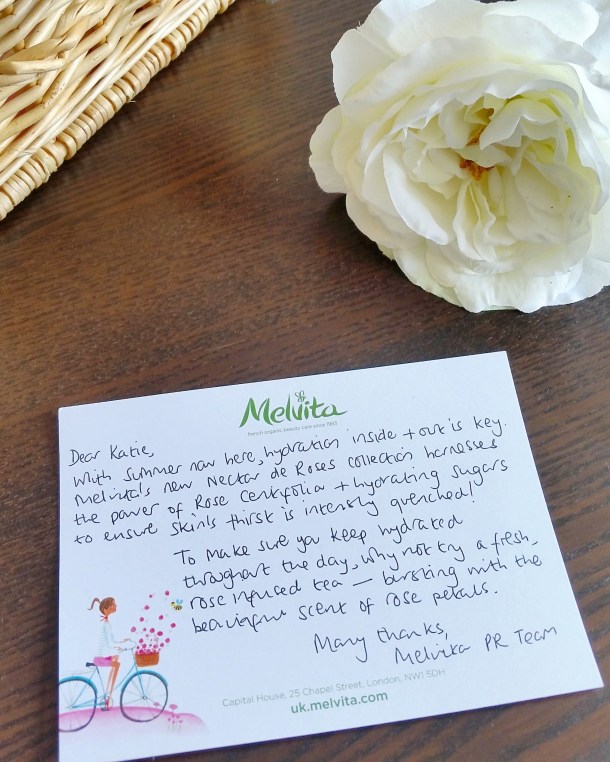 Melvita
french organic beauty care since 1983
Dear Katie,
With summer now here, hydration inside + out is key.
Melvita's new Nectar de Roses collection harnesses
the power of Rose Centifolia + hydrating sugars
to ensure skin's thirst is intensly quenched!
To make sure you keep hydrated
throughout the day, why not try a fresh,
rose infused tea — bursting with the
beautiful scent of rose petals.
Many thanks,
Melvita PR Team
Capital House, 25 Chapel Street, London, NW1 5DH
uk.melvita.com